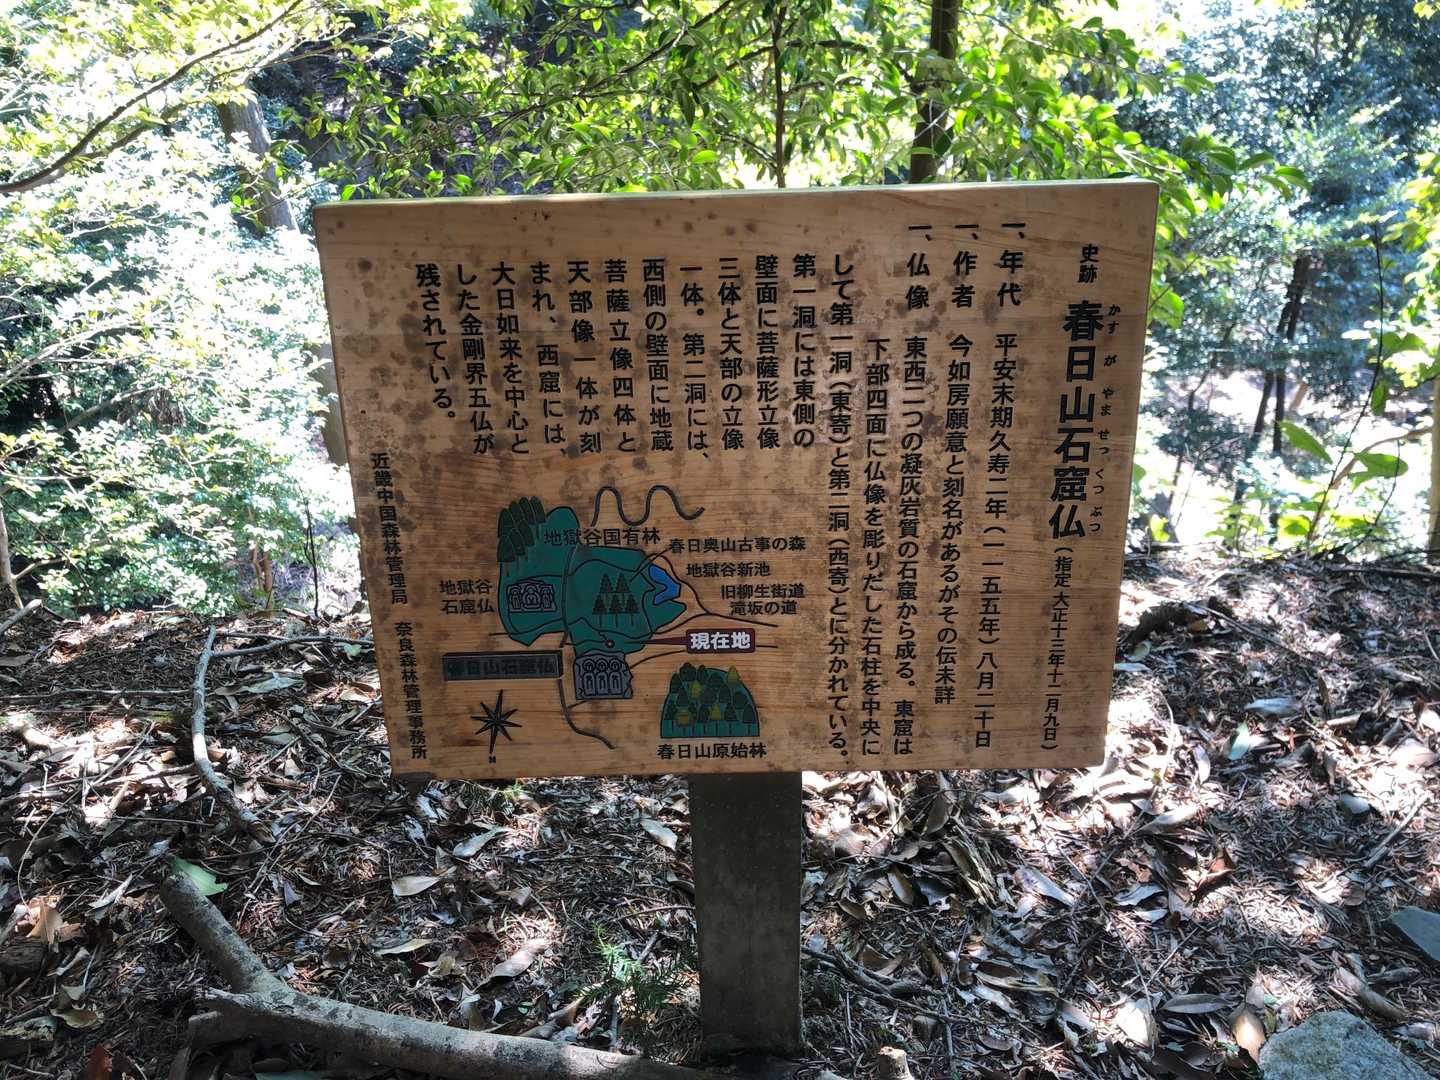 史跡 春日山石窟仏(指定大正十三年十二月九日)
かすが やま せっくつ ぶつ
一、年代 平安末期久寿二年(一一五五年)八月二十日
一、作者 今如房願意と刻名があるがその伝未詳
一、仏像 東西二つの凝灰岩質の石窟から成る。東窟は
下部四面に仏像を彫りだした石柱を中央に
して第一洞(東寄)と第二洞(西寄)とに分かれている。
第一洞には東側の
壁面に菩薩形立像
三体と天部の立像
一体。第二洞には、
西側の壁面に地蔵
菩薩立像四体と
天部像一体が刻
まれ、西窟には、
大日如来を中心と
した金剛界五仏が
残されている。
近畿中国森林管理局 奈良森林管理事務所
地獄谷国有林
春日奥山古事の森
地獄谷新池
旧柳生街道
滝坂の道
地獄谷
石窟仏
現在地
春日山石窟仏
春日山原始林
N